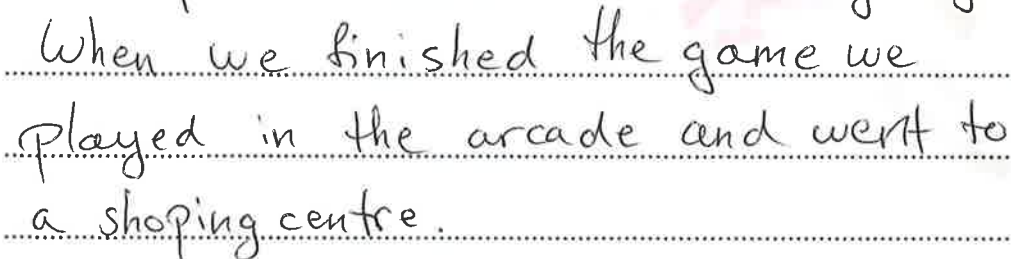 When we finished the game we
played in the arcade and went to
a shoping centre.